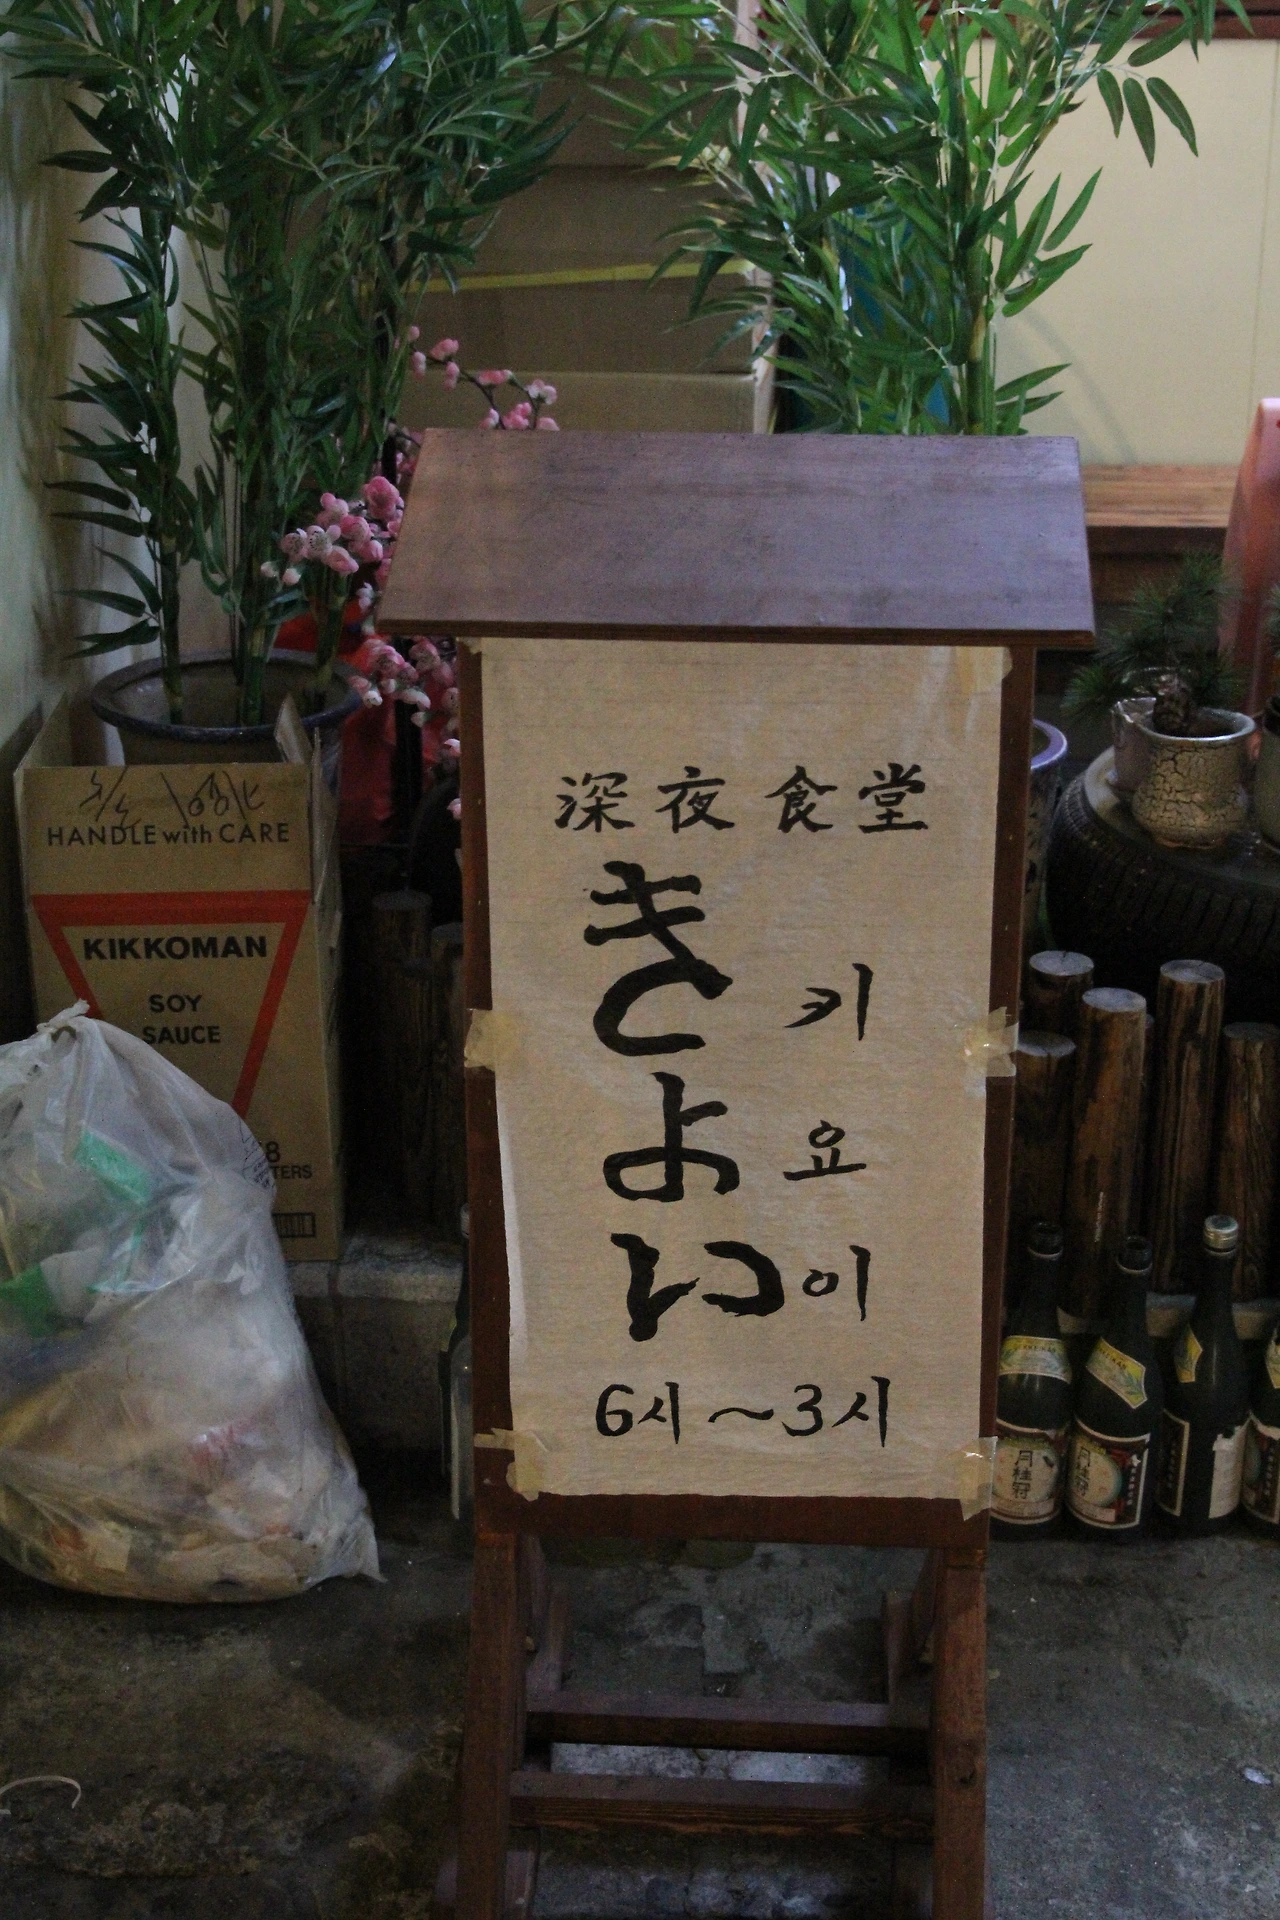 深夜食堂
きよい
키요이
6시~3시
HANDLE with CARE
KIKKOMAN
SOY
SAUCE
月桂冠
月桂冠